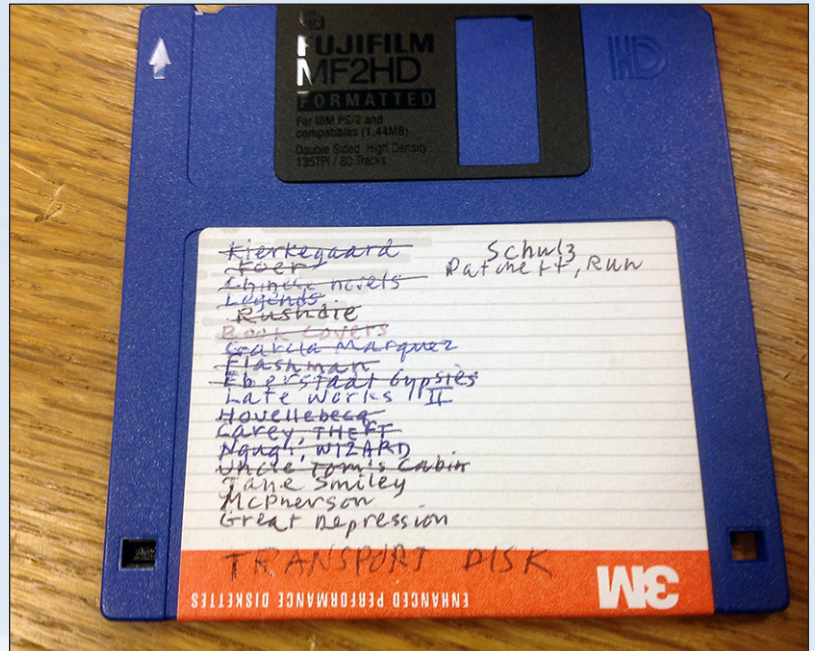 FUJIFILM
MF2HD
FORMATTED
For IBM PS/2 and
compatibles (1.44MB)
Double Sided High Density
135TPI / 80 Tracks
HD
Kierkegaard
Foer
Chinese novels
Legends
Rushdie
Book Covers
Garcia Marquez
Flashman
Eberstadt Gypsies
Late Works II
Houellebecq
Carey, THEFT
Ngugi, WIZARD
Uncle Tom's Cabin
Jane Smiley
McPherson
Great Depression
Schulz
Patchett, Run
TRANSPORT DISK
3M
ENHANCED PERFORMANCE DISKETTES